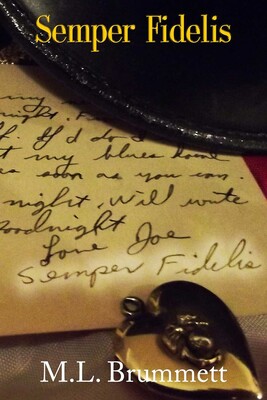 Semper Fidelis
my
night.
ff. I'd do
t my blues home
as soon as you can.
night, Will write
oodnight
Love Joe
Semper Fidelis
M.L. Brummett